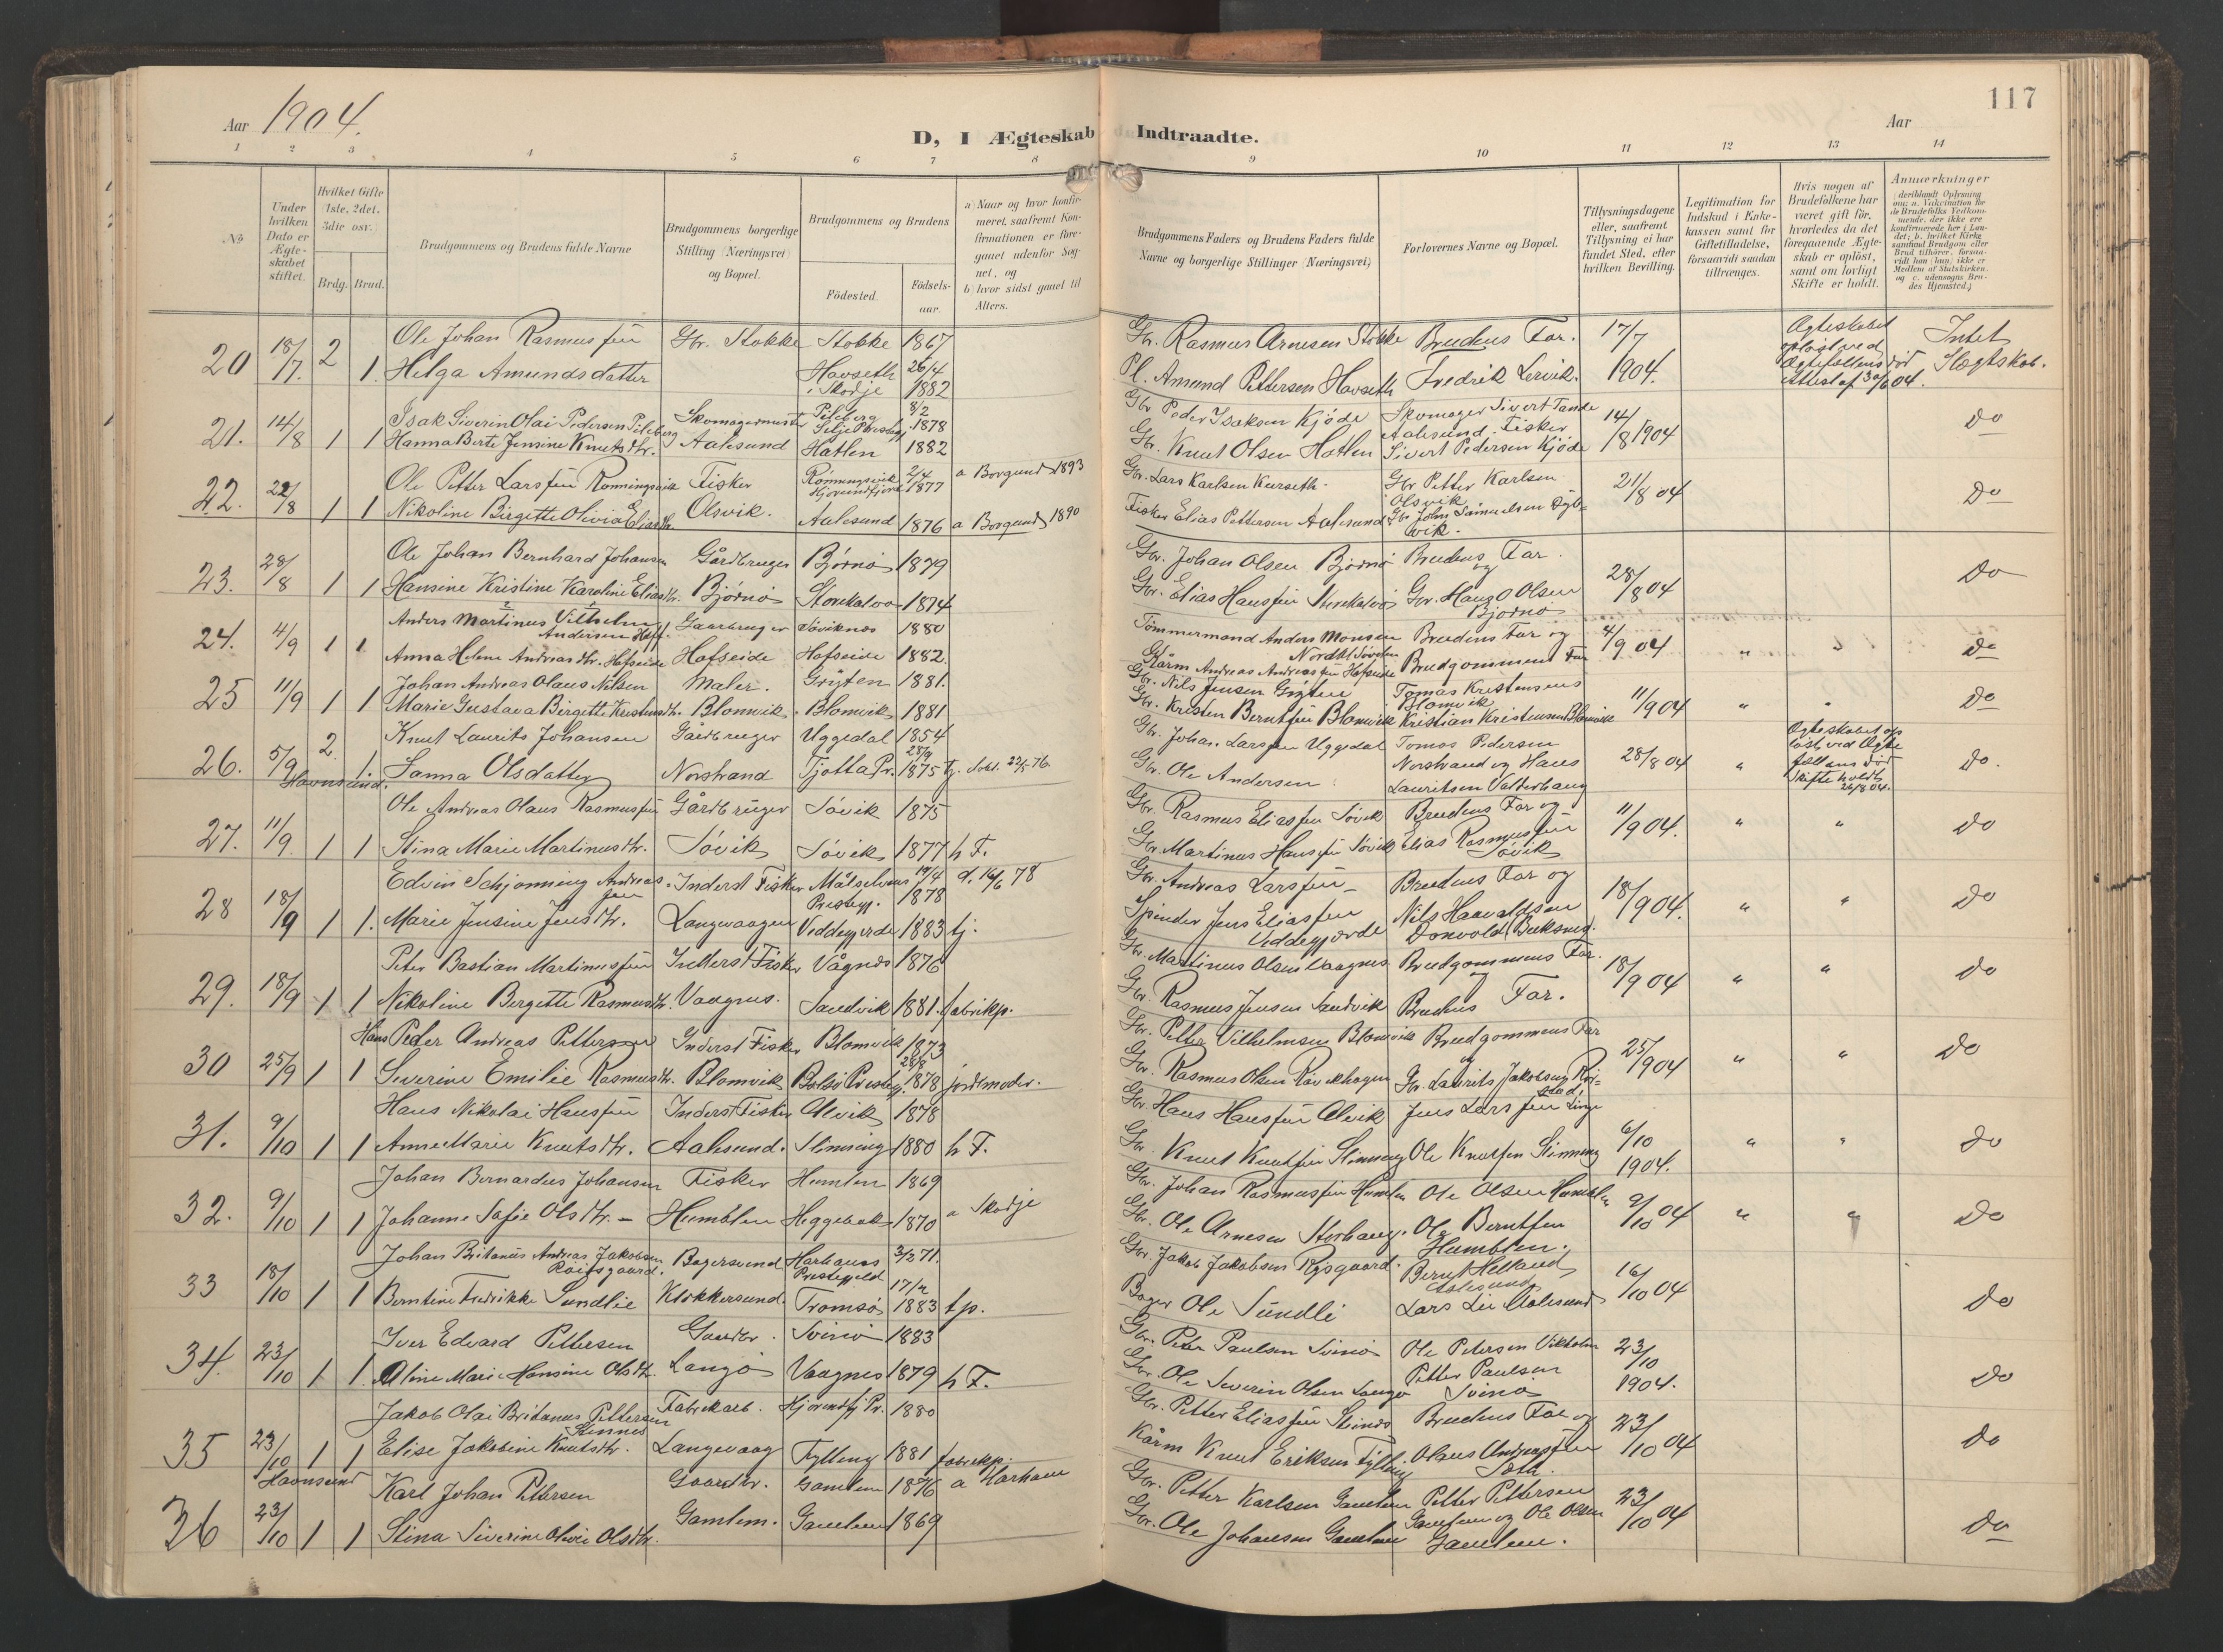 117
Aar 1904.
Aar
D, I Ægteskab Indtraadte.
1 2 3 4 5 6 7 8 9 10 11 12 13 14
No
Under hvilken Dato er Ægteskabet stiftet.
Hvilket Gifte (1ste, 2det, 3die osv.)
Brdg. Brud.
Brudgommens og Brudens fulde Navne
Brudgommens borgerlige Stilling (Næringsvei) og Bopæl.
Brudgommens og Brudens
Fødested.
Fødselsaar.
a) Naar og hvor konfirmeret, saafremt Konfirmationen er foregaaet udenfor Sognet, og
b) hvor sidst gaaet til Alters.
Brudgommens Faders og Brudens Faders fulde Navne og borgerlige Stillinger (Næringsvei)
Forlovernes Navne og Bopæl.
Tillysningsdagene eller, saafremt Tillysning ei har fundet Sted, efter hvilken Bevilling.
Legitimation for Indskud i Enkekassen samt for Giftetilladelse, forsaavidt saadan tiltrænges.
Hvis nogen af Brudefolkene har været gift før, hvorledes da det foregaaende Ægteskab er opløst, samt om lovligt Skifte er holdt.
Anmærkninger
(deriblandt Oplysning om: a. Vakcination for de Brudefolks Vedkommende, der ikke ere konfirmerede her i Landet; b. hvilket Kirkesamfund Brudgom eller Brud tilhører, forsaavidt han (hun) ikke er Medlem af Statskirken, og c. udensogns Brudes Hjemsted.)
20 18/7. 2 1. Ole Johan Rasmussen Gbr. Stokke Stokke 1867 Gbr. Rasmus Arnesen Stokke Brudens Far. 17/7 1904. Ægteskabet opløst ved Ægtefællens død Attest af 30/6 04. Intet Slægtskab.
Helga Amundsdatter Havseth i Skodje 26/4 1882 Pl. Amund Pettersen Havseth Fredrik Lervik.
21. 14/8 1 1 Isak Siverin Olai Pedersen Pileberg Skomagermester Pileberg Selje Præstegj. 8/2 1878 Gbr Peder Isaksen Kjøde Skomager Sivert Tande Aalesund. Fisker 14/8 1904 do
Hanna Berte Jensine Knutsdtr. Aalesund Hatlen 1882 Gbr. Knut Olsen Hatlen Sivert Pedersen Kjøde
22. 22/8 1 1 Ole Petter Larssen Rønningsvik Fisker Rønningsvik Hjørundfjord 2/4 1877 a Borgund 1893 Gbr. Lars Karlsen Kurseth. Gbr Petter Karlsen Olsvik 21/8 04 do
Nikoline Birgitte Olivia Eliasdtr. Olsvik. Aalesund 1876 a Borgund 1890 Fisker Elias Pettersen Aalesund Gbr. John Samuelsen
23. 28/8 1 1 Ole Johan Bernhard Johansen Gårdbruger Bjørnø 1879 Gbr. Johan Olsen Bjørnø Brudens Far. og 28/8 04 do
Hansine Kristine Karoline Eliasdtr. Bjørnø Storekalvø 1874 Gbr. Elias Hanssen Storekalvø Gbr. Hans O Olsen Bjørnø
24. 4/9 1 1 Anders Martinus Vilhelm Andersen Hoff. Gaarbruger Søviknes 1880 Tømmermand Anders Monsen Brudens Far og 4/9 04 " " do
Anna Helene Andreasdtr. Hofseide Hofseide Hofseide 1882. Kårm Andreas Andreassen Hofseide Brudgommens Far
25 11/9 1 1 Johan Andreas Olaus Nilsen Maler. Gryten 1881. Gbr. Nils Jensen Gryten Tomas Kristensens Blomvik 11/9 04 " " do
Marie Gustava Birgitte Kristensdtr. Blomvik. Blomvik 1881 Gbr. Kristen Berntsen Blomvik Kristian Kristensen Blomvik
26. 5/9 2. 1. Knut Laurits Johansen Gårdbruger Uggedal 1854 Gbr. Johan Larssen Uggedal Tomas Pedersen Norstrand og Hans 28/8 04 " Ægteskabet opløst ved Ægtefellens død Skifte holdt 26/8 04. do.
Havnsund. Sanna Olsdatter Norstrand Tjøtta Pr. 28/9 1875 Gbr. Ole Andersen Lauritsen Valderhaug
27. 11/9. 1 1 Ole Andreas Olaus Rasmussen Gårdbruger Søvik 1875 Gbr. Rasmus Eliassen Søvik Brudens Far og 11/9 04. " " do
Stina Marie Martinusdtr. Søvik Søvik 1877 h F. Gbr. Martinus Hanssen Søvik Elias Rasmussen Søvik
28 18/9 1 1. Edvin Schjønning Andreassen Inderst Fisker Målselvens Prestegj. 19/4 1878 d. 16/6 78 Gbr. Andreas Larssen Brudens Far og 18/9 04. " " do
Marie Jensine Jensdtr. Langevaagen Veddegjerde 1883 tj. Spinder Jens Eliassen Veddegjerde Nils Haavaldsen
29. 18/9 1 1 Peter Bastian Martinussen Inderst Fisker Vågnes 1876 Gbr. Martinus Olsen Vaagnes Brudgommens Far. og 18/9 04 " " do
Nikoline Bergette Rasmusdtr. Vaagnes. Sandvik 1881. fabrikp. Gbr. Rasmus Jensen Sandvik Brudens Far.
30 25/9 1 1 Hans Peder Andreas Pettersen Inderst Fisker Blomvik 1873 Gbr. Petter Vilhelmsen Blomvik Brudgommens Far og 25/9 04 " " do
Severine Emilie Rasmusdtr. Blomvik Bolsø Prestegj. 28/8 1878 jordmoder. Gbr. Rasmus Olsen Røvikhagen Gbr. Laurits Jakobsen
31. 9/10 1 1 Hans Nikolai Hanssen Inderst Fisker Alvik 1878 Gbr Hans Hanssen Alvik Jens Larssen Linge 6/10 1904. " " do
Anne Marie Knutsdtr. Aalesund. Slinning 1880 h F. Gbr. Knut Knutsen Slinning Ole Knutsen Slinning
32. 9/10 1 1 Johan Bernardus Johansen Fisker Humlen 1869 Gbr. Johan Rasmussen Humlen Ole Olsen Humblen 9/10 04 " " do
Johanne Sofie Olsdtr. – Humblen Heggebak 1870 a Skodje Gbr. Ole Arnesen Storhaug. Ole Berntsen Humblen.
33 18/10 1 1 Johan Britanus Andreas Jakobsen Røifsgaard. Bagersvend Harhams Prestegjeld 3/3 71. Gbr. Jakob Jakobsen Røfsgaard. Bernt Helland Aalesund 16/10 04 do
Berntine Fredrikke Sundlie Klokkersund. Tromsø 17/2 1883 tp. Bager Ole Sundli Lars Lie Aalesund
34. 23/10 1 1. Iver Edvard Pettersen Gaardbr. Svinø 1883 Gbr. Peter Paulsen Svinø Ole Petersen Vikholm 23/10 1904. do
Oline Marie Hansine Olsdtr. Langø Vaagnes 1879 h F. Gbr. Ole Severin Olsen Langø Petter Paulsen Svinø
35 23/10 1 1 Jakob Olai Britanus Pettersen Stennes Fabrikarb. Hjørundfj Pr. 1880 Gbr. Petter Eliassen Stenes Brudens Far og 23/10 04 do
Elise Jakobine Knutsdtr. Langevaag Fylling 1881 fabrikp. Kårm Knut Eriksen Fylling Olaus Andreassen
Havnsund
36 23/10 1 1 Karl Johan Pettersen Gaardbr. Gamlem 1876 a Harham Gbr. Petter Karlsen Gamlem Petter Pettersen 23/10 04 do
Stina Siverine Olivie Olsdtr. Gamlem. Gamlem 1869 Gbr. Ole Johansen Gamlem Gamlem og Ole Olsen Gamlem.